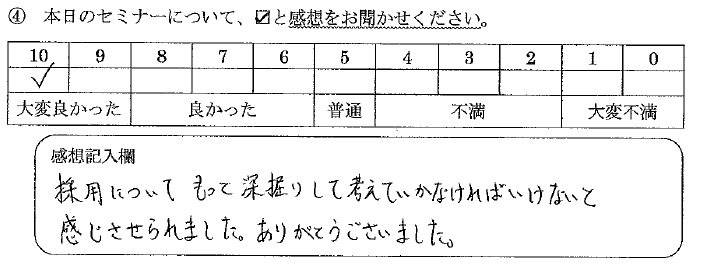 ④ 本日のセミナーについて、☑と感想をお聞かせください。
10 9 8 7 6 5 4 3 2 1 0
✓
大変良かった 良かった 普通 不満 大変不満
感想記入欄
採用について もって深掘りして考えていかなければいけないと
感じさせられました。ありがとうございました。